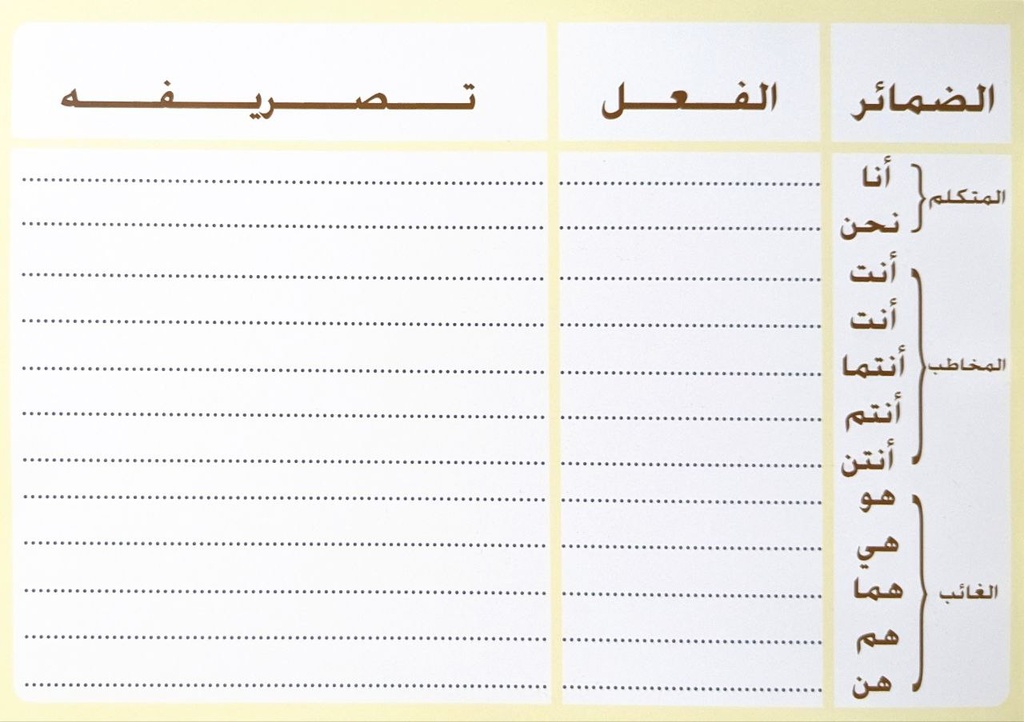 الضمائر الفعل تصريفه
المتكلم
أنا
نحن
المخاطب
أنت
أنت
أنتما
أنتم
أنتن
الغائب
هو
هي
هما
هم
هن